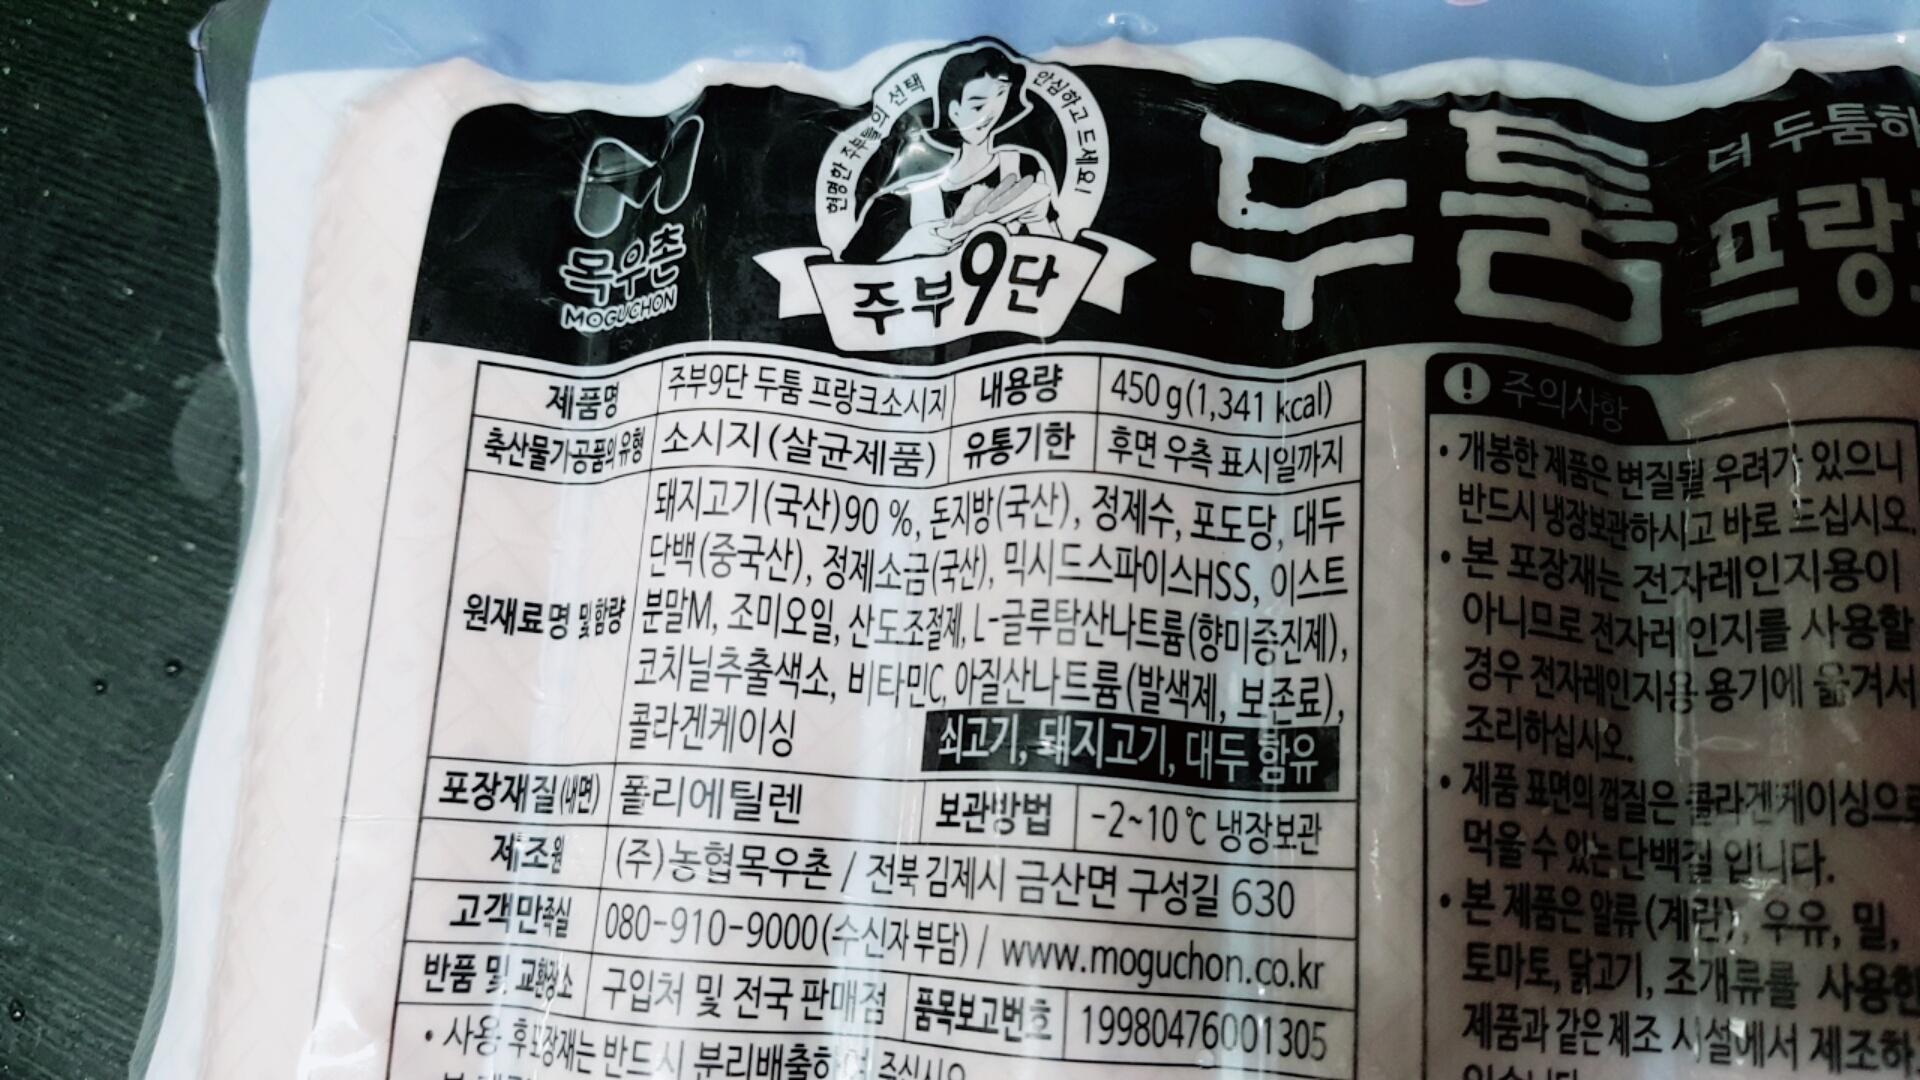 현명한 주부들의 선택
안심하고 드세요!
목우촌
MOGUCHON
주부9단
두툼
더 두툼하
프랑
제품명 주부9단 두툼 프랑크소시지 내용량 450 g(1,341 kcal)
축산물가공품의 유형 소시지 (살균제품) 유통기한 후면 우측 표시일까지
원재료명 및 함량
돼지고기(국산)90 %, 돈지방(국산), 정제수, 포도당, 대두
단백(중국산), 정제소금(국산), 믹시드스파이스HSS, 이스트
분말M, 조미오일, 산도조절제, L-글루탐산나트륨(향미증진제),
코치닐추출색소, 비타민C, 아질산나트륨(발색제, 보존료),
콜라겐케이싱
쇠고기, 돼지고기, 대두 함유
포장재질(내면) 폴리에틸렌 보관방법 -2~10℃ 냉장보관
제조원 (주)농협목우촌 / 전북 김제시 금산면 구성길 630
고객만족실 080-910-9000(수신자부담) / www.moguchon.co.kr
반품 및 교환장소 구입처 및 전국 판매점 품목보고번호 19980476001305
• 사용 후 포장재는 반드시 분리배출하여 주십시오
! 주의사항
• 개봉한 제품은 변질될 우려가 있으니
반드시 냉장보관하시고 바로 드십시오.
• 본 포장재는 전자레인지용이
아니므로 전자레인지를 사용할
경우 전자레인지용 용기에 옮겨서
조리하십시오.
• 제품 표면의 껍질은 콜라겐케이싱으로
먹을 수 있는 단백질 입니다.
• 본 제품은 알류(계란), 우유, 밀,
토마토, 닭고기, 조개류를 사용한
제품과 같은 제조 시설에서 제조하